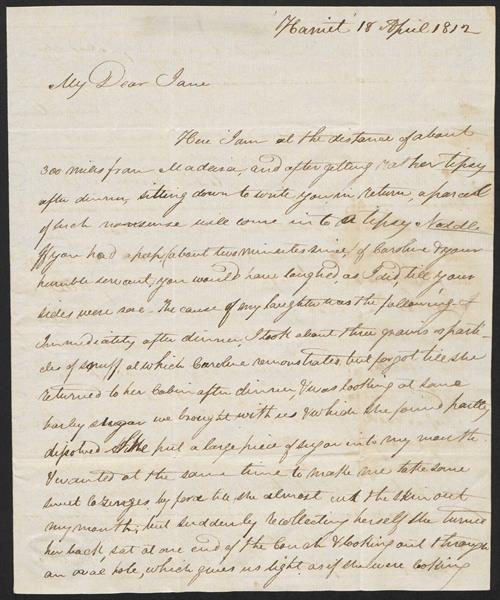 'Harriet' 18 April 1812
My Dear Jane
Here I am at the distance of about
300 miles from Madeira, and after getting rather tipsy
after dinner, sitting down to write you in return, a parcel
of such nonsense will come in to a tipsy Noddle
If you had a peep (about two minutes since) of Caroline & your
humble servant, you would have laughed as I did, till your
sides were sore. The cause of my laughter was the following
Immediately after dinner, I took about three grains or parti-
cles of snuff, at which Caroline remonstrates but forgot till she
returned to her Cabin after dinner, I was looking at some
barley sugar we brought with us & which she found partly
disolved she put a large piece of sugar into my mouth
& wanted at the same time to make me take some
sweet Lozenges by force till she almost cut the skin out
my mouth, but suddenly recollecting herself she turned
her back, sat at one end of the Couch & looking out through
an oval hole, which gives us light as if she were looking